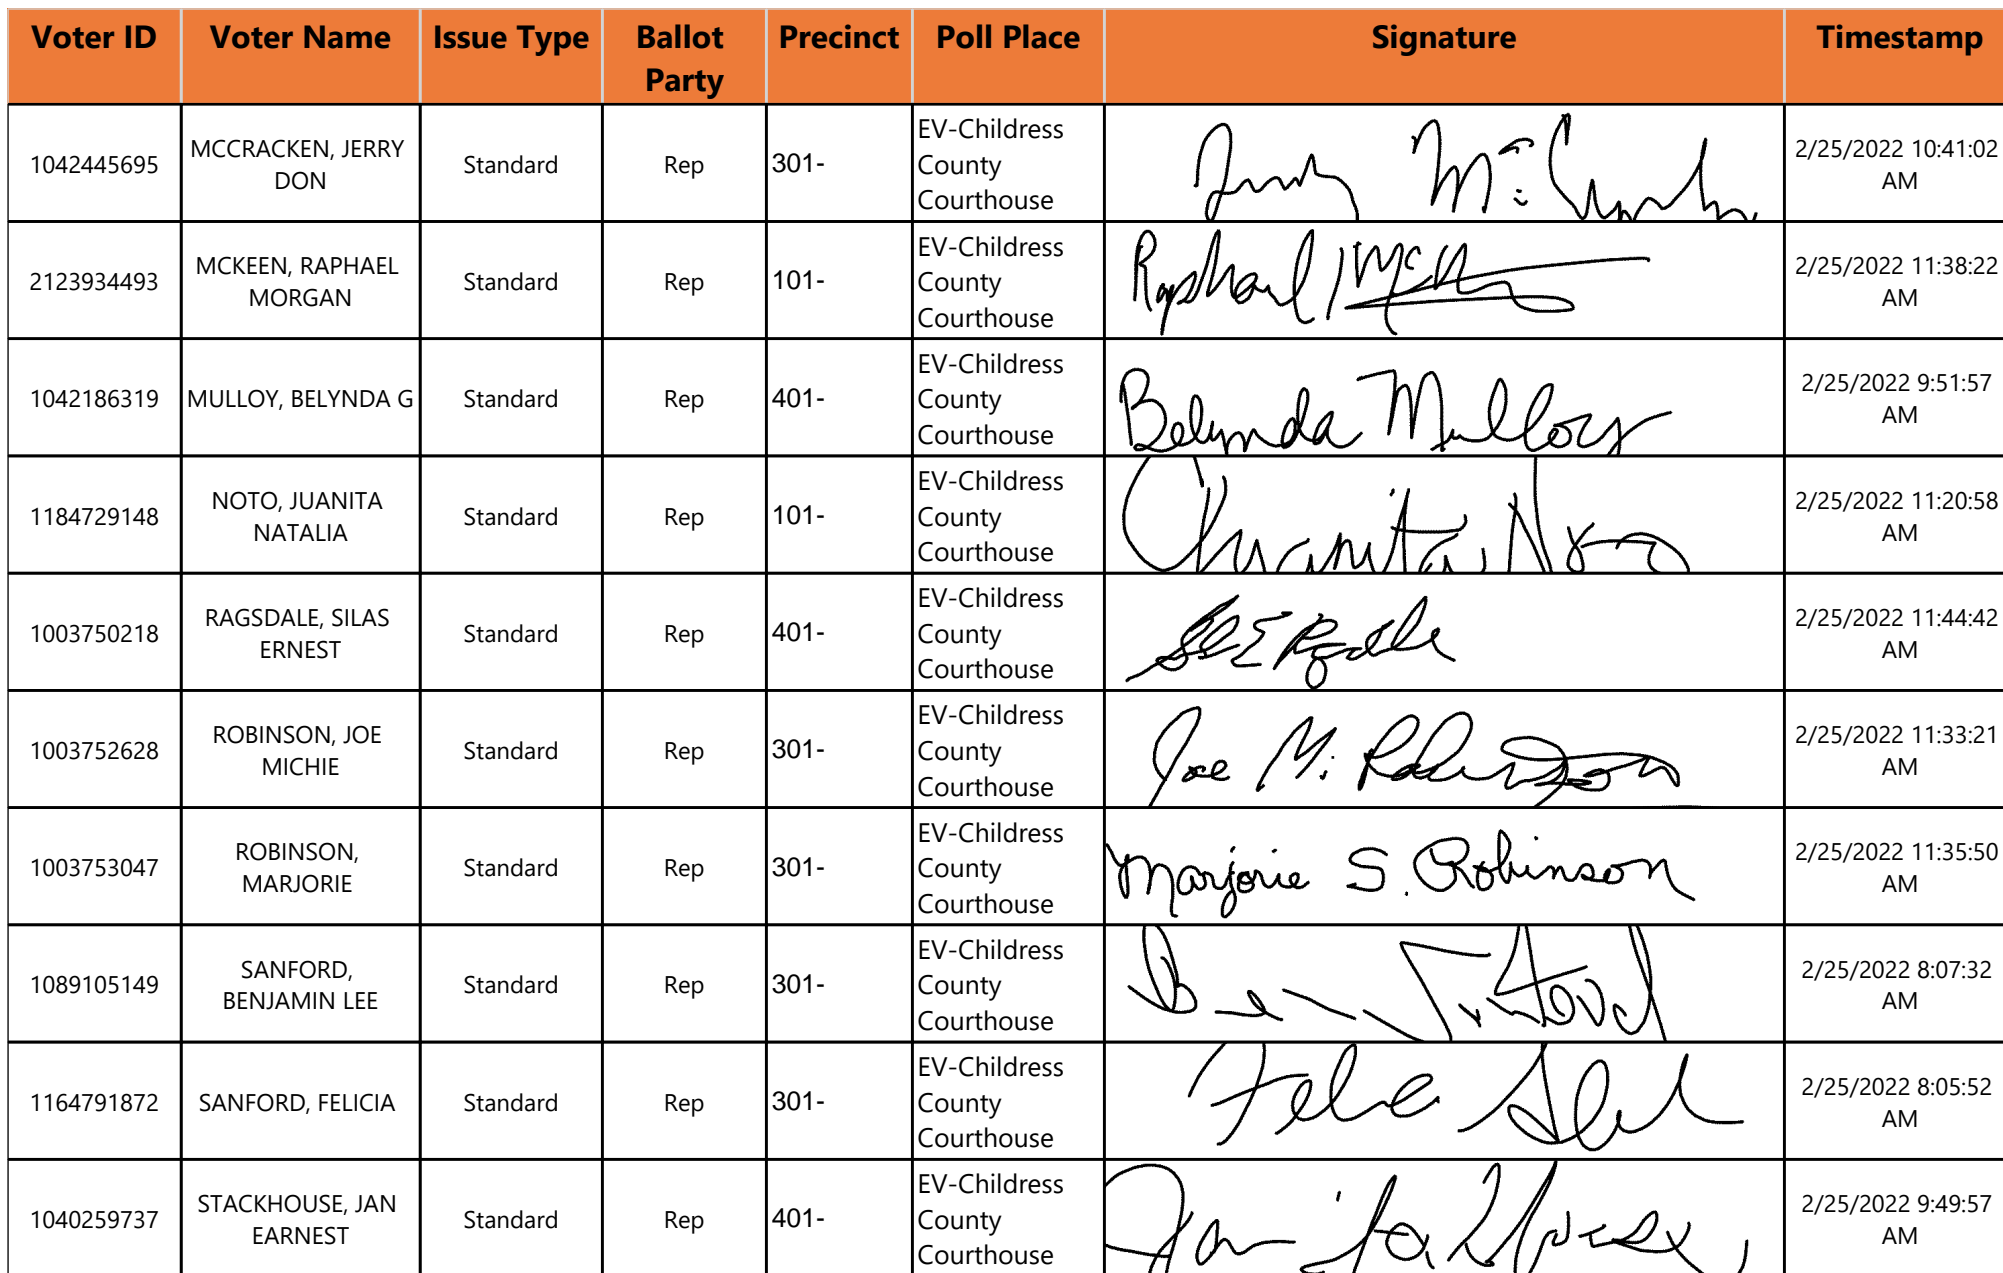 Voter ID Voter Name Issue Type Ballot Party Precinct Poll Place Signature Timestamp
1042445695 MCCRACKEN, JERRY DON Standard Rep 301- EV-Childress County Courthouse 2/25/2022 10:41:02 AM
2123934493 MCKEEN, RAPHAEL MORGAN Standard Rep 101- EV-Childress County Courthouse Raphael 2/25/2022 11:38:22 AM
1042186319 MULLOY, BELYNDA G Standard Rep 401- EV-Childress County Courthouse Belynda Mulloy 2/25/2022 9:51:57 AM
1184729148 NOTO, JUANITA NATALIA Standard Rep 101- EV-Childress County Courthouse Juanita Noto 2/25/2022 11:20:58 AM
1003750218 RAGSDALE, SILAS ERNEST Standard Rep 401- EV-Childress County Courthouse 2/25/2022 11:44:42 AM
1003752628 ROBINSON, JOE MICHIE Standard Rep 301- EV-Childress County Courthouse Joe M. Robinson 2/25/2022 11:33:21 AM
1003753047 ROBINSON, MARJORIE Standard Rep 301- EV-Childress County Courthouse Marjorie S. Robinson 2/25/2022 11:35:50 AM
1089105149 SANFORD, BENJAMIN LEE Standard Rep 301- EV-Childress County Courthouse 2/25/2022 8:07:32 AM
1164791872 SANFORD, FELICIA Standard Rep 301- EV-Childress County Courthouse 2/25/2022 8:05:52 AM
1040259737 STACKHOUSE, JAN EARNEST Standard Rep 401- EV-Childress County Courthouse 2/25/2022 9:49:57 AM